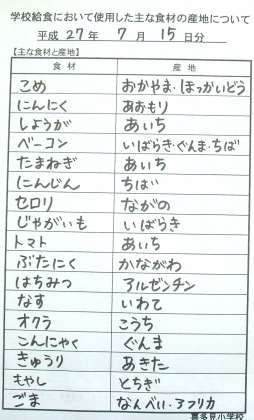 学校給食において使用した主な食材の産地について
平成 27 年 7 月 15 日分
【主な食材と産地】
食材 産地
こめ おかやま・ほっかいどう
にんにく あおもり
しょうが あいち
ベーコン いばらき・ぐんま・ちば
たまねぎ あいち
にんじん ちば
セロリ ながの
じゃがいも いばらき
トマト あいち
ぶたにく かながわ
はちみつ アルゼンチン
なす いわて
オクラ こうち
こんにゃく ぐんま
きゅうり あきた
もやし とちぎ
ごま なんべい・アフリカ
喜多見小学校